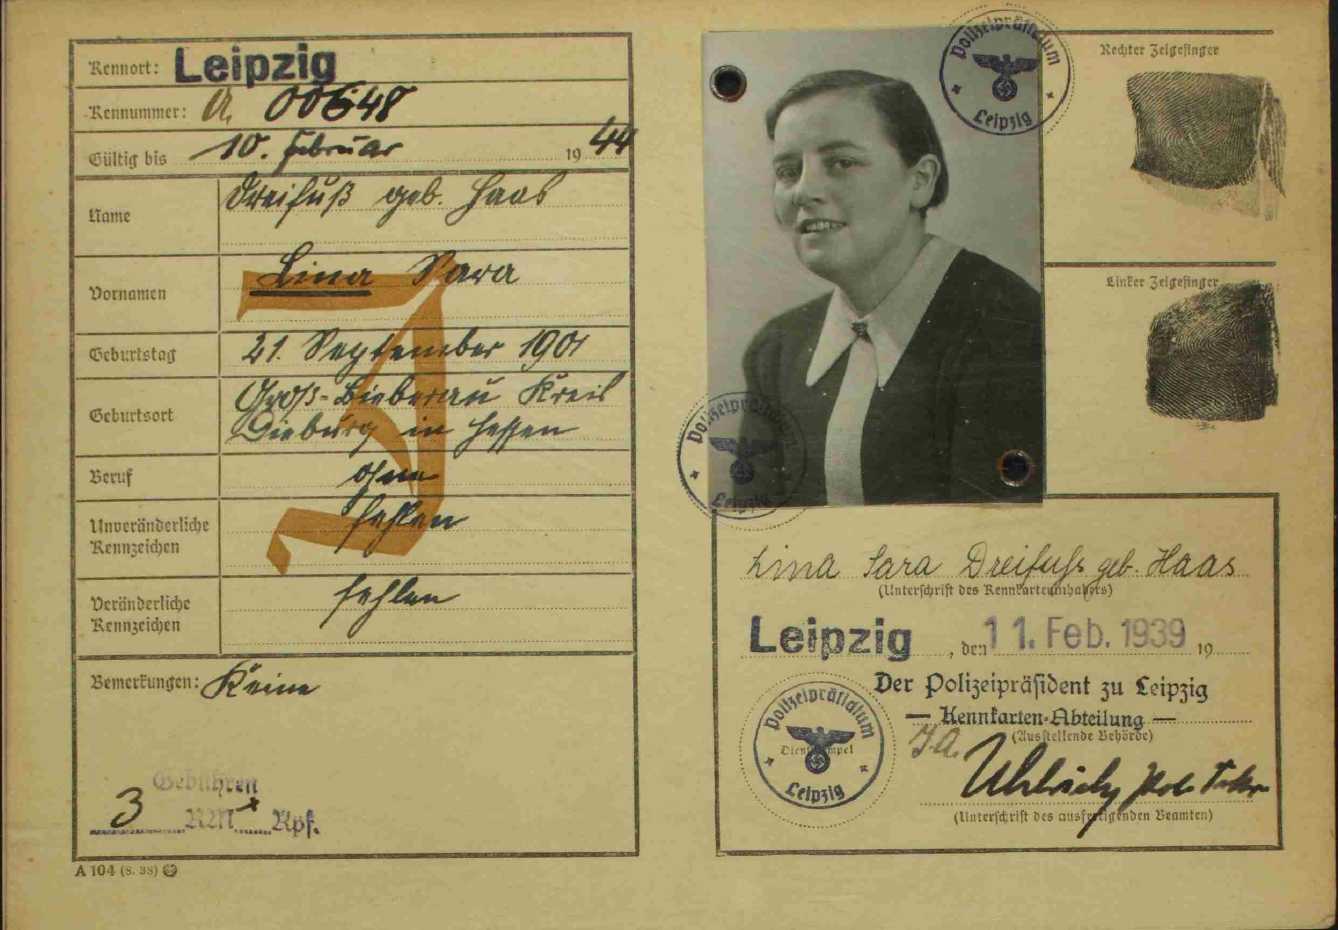 Kennort: Leipzig
Kennummer: A. 00648
Gültig bis 10. Februar 1944
Name Dreifuß geb. Haas
Vornamen Lina Sara
J
Geburtstag 21. September 1901
Geburtsort Groß-Bieberau Kreis
Dieburg in Hessen
Beruf ohne
Unveränderliche
Kennzeichen fehlen
Veränderliche
Kennzeichen fehlen
Bemerkungen: Keine
Gebühren
3 RM Rpf.
A 104 (8. 38)
Polizeipräsidium
Leipzig
Polizeipräsidium
Leipzig
Rechter Zeigefinger
Linker Zeigefinger
Lina Sara Dreifuß geb. Haas
(Unterschrift des Kennkarteninhabers)
Leipzig, den 11. Feb. 1939 19
Der Polizeipräsident zu Leipzig
— Kennkarten-Abteilung —
(Ausstellende Behörde)
Polizeipräsidium
Dienststempel
Leipzig
J.A.
(Unterschrift des ausfertigenden Beamten)